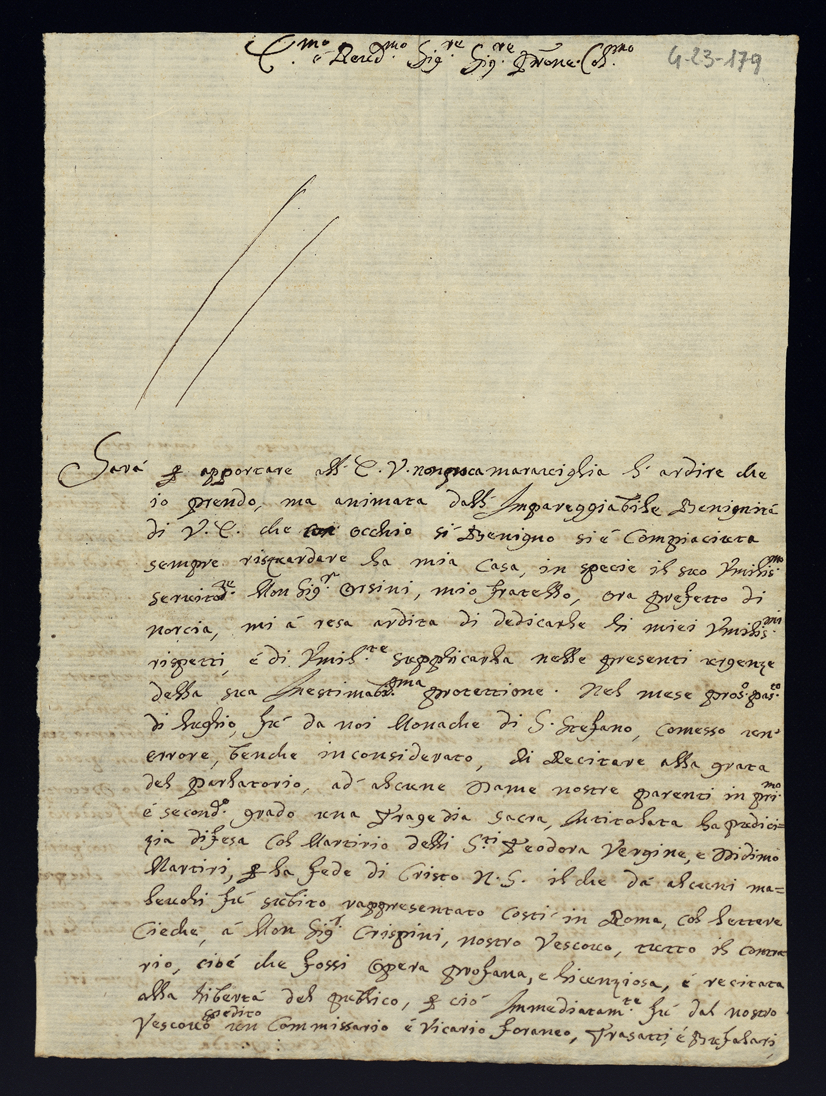 E.mo é Reved.mo Sig.re Sig.re Prone. Col.mo
4-23-179
Sará p apportare all' E. V. non poca maraviglia l' ardire che
io prendo, ma animata dall' Impareggiabile Benignitá
di V. E. che con occhio sí Benigno si é Compiaciuta
sempre risguardare la mia Casa, in specie il suo Vmilis.mo
servito.re Mon Sig.r Orsini, mio fratello, ora prefetto di
norcia, mi á resa ardita di dedicarle li miei Vmilis.mi
rispetti, é di Vmil.nte supplicarla nelle presenti urgenze
della sua Inestimabi.ma protettione. Nel mese pros.o pas.to
di luglio, fú da noi Monache di S. Stefano, comesso un'
errore, benche inconsiderato, di Recitare alla grata
del parlatorio, ad' alcune Dame nostre parenti in pri.mo
é second.o grado una Tragedia sacra, Intitolata la pudici=
zia difesa col Martirio delli S.ti Teodora Vergine, e Didimo
Martiri, p la fede di Cristo N. S. il che dá alcuni ma=
levoli fú subito rappresentato costí in Roma, col lettere
Cieche, á Mon Sig.r Crispini, nostro Vescovo, tutto il contra
rio, cioé che fossi Opera profana, e licenziosa, é recitata
alla libertá del publico, p ció Immediatam.te fú dal nostro
Vescovo spedito un Commissario é Vicario foraneo, Trasatti, é Bufalari,